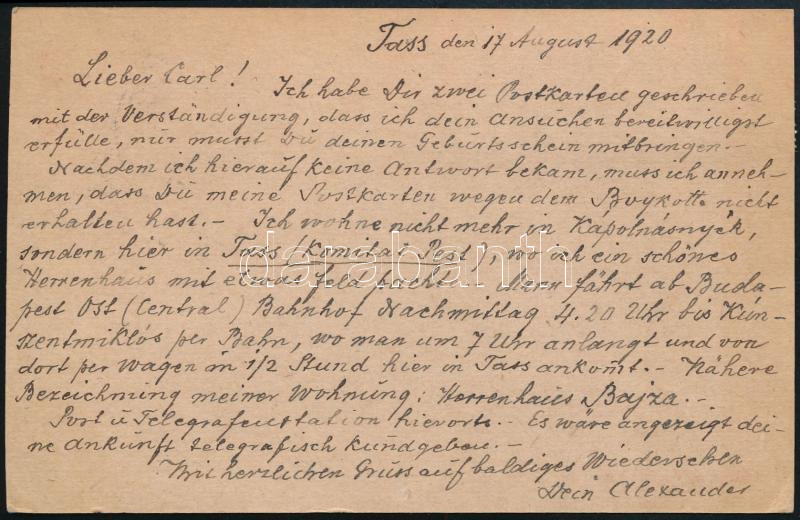 Tass den 17 August 1920
Lieber Carl! Ich habe Dir zwei Postkarten geschrieben
mit der Verständigung, dass ich dein Ansuchen bereitwilligst
erfülle, nur musst Du deinen Geburtsschein mitbringen.-
Nachdem ich hierauf keine Antwort bekam, muss ich anneh-
men, dass Du meine Postkarten wegen dem Boykott nicht
erhalten hast.- Ich wohne nicht mehr in Kápolnásnyék,
sondern hier in Tass (Komitat Pest), wo ich ein schönes
Herrenhaus mit etwas Feld. Man fährt ab Buda-
pest Ost (Central) Bahnhof Nachmittag 4.20 Uhr bis Kún-
szentmiklós per Bahn, wo man um 7 Uhr anlangt und von
dort per Wagen in 1/2 Stund hier in Tass ankomt.- Nähere
Bezeichnung meiner Wohnung: Herrenhaus Bajza.-
Post u Telegrafenstation hierorts.- Es wäre angezeigt dei-
ne Ankunft telegrafisch kundgeben.-
Mit herzlichen Gruss auf baldiges Wiedersehen
Dein Alexander
darabanth